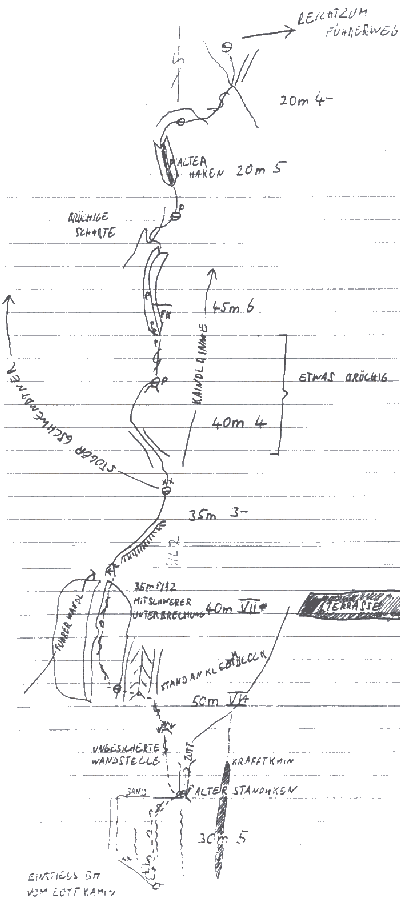 LEICHT ZUM
FÜHRERWEG
20m 4-
ALTER
HAKEN 20m 5
BRÜCHIGE
SCHARTE
45m 6
KAINDLRINNE
ETWAS BRÜCHIG
STÖGER GSCHWENDTNER
40m 4
35m 3-
MIT SCHWERER
UNTERBRECHUNG
40m VII
TERRASSE
STAND AN KLEMMBLOCK
50m
UNGESICHERTE
WANDSTELLE
KRAFFTKAMIN
BAND
ALTER STANDHAKEN
30m 5
EINSTIEG 5M
VOM LOTTKAMIN